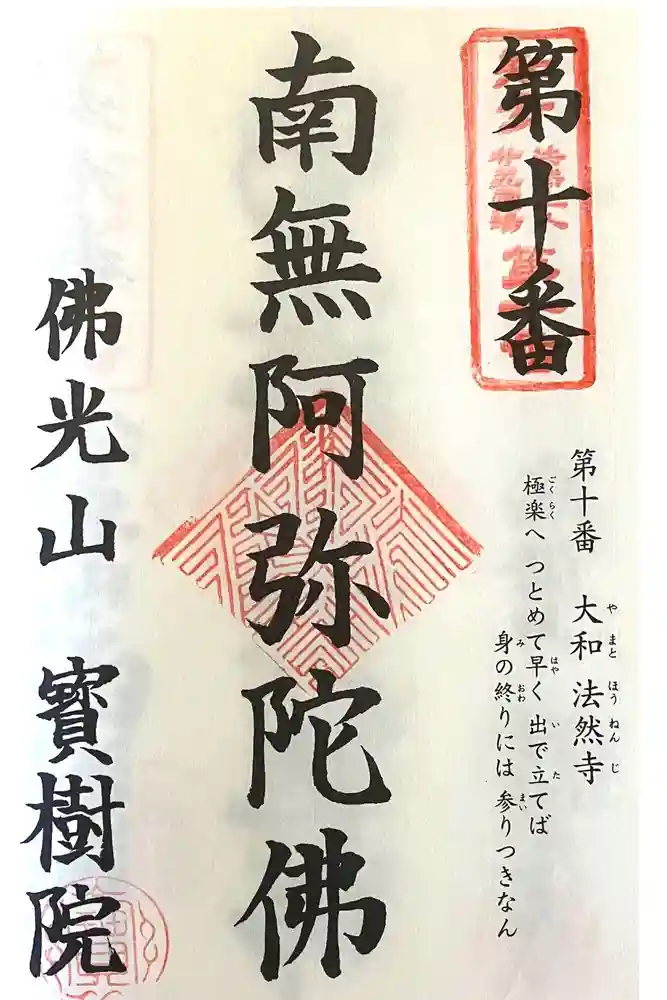 第十番
第十番 大和 法然寺
極楽へ つとめて早く 出で立てば
身の終りには 参りつきなん
南無阿弥陀佛
佛光山 寳樹院